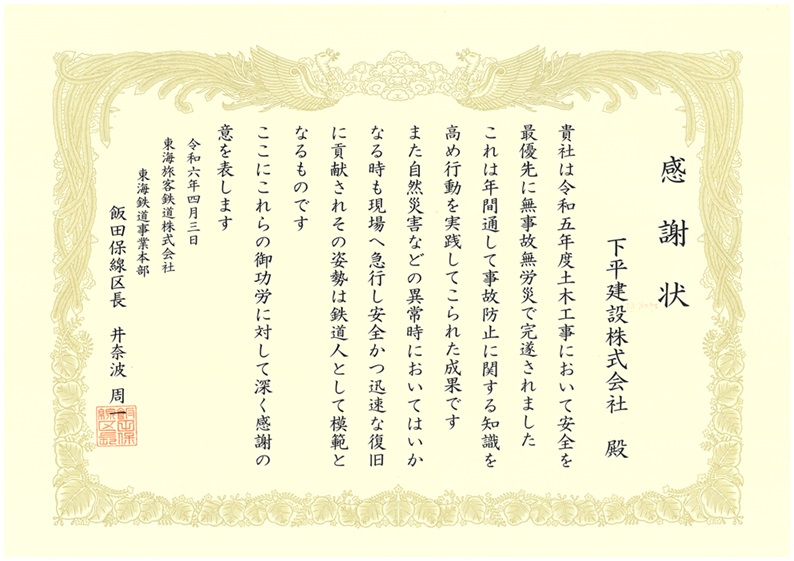 感謝状
下平建設株式会社 殿
貴社は令和五年度土木工事において安全を
最優先に無事故無労災で完遂されました
これは年間通して事故防止に関する知識を
高め行動を実践してこられた成果です
また自然災害などの異常時においてはいか
なる時も現場へ急行し安全かつ迅速な復旧
に貢献されその姿勢は鉄道人として模範と
なるものです
ここにこれらの御功労に対して深く感謝の
意を表します
令和六年四月三日
東海旅客鉄道株式会社
東海鉄道事業本部
飯田保線区長 井奈波 周一